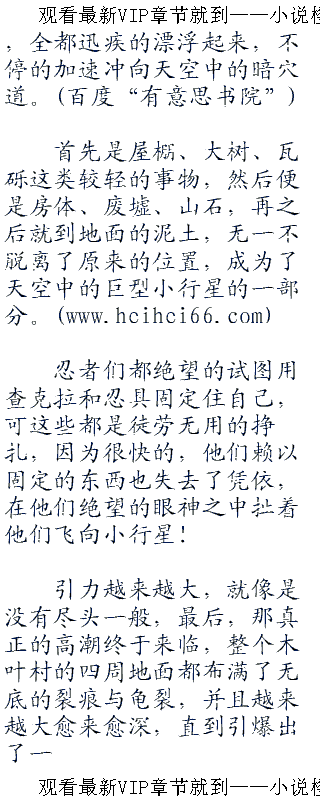 观看最新VIP章节就到——小说检
，全都迅疾的漂浮起来，不
停的加速冲向天空中的暗穴
道。(百度“有意思书院”)
首先是屋檐、大树、瓦
砾这类较轻的事物，然后便
是房体、废墟、山石，再之
后就到地面的泥土，无一不
脱离了原来的位置，成为了
天空中的巨型小行星的一部
分。(www.hcihci66.com)
忍者们都绝望的试图用
查克拉和忍具固定住自己，
可这些都是徒劳无用的挣
扎，因为很快的，他们赖以
固定的东西也失去了凭依，
在他们绝望的眼神之中扯着
他们飞向小行星！
引力越来越大，就像是
没有尽头一般，最后，那真
正的高潮终于来临，整个木
叶村的四周地面都布满了无
底的裂痕与龟裂，并且越来
越大愈来愈深，直到引爆出
了一
观看最新VIP章节就到——小说检